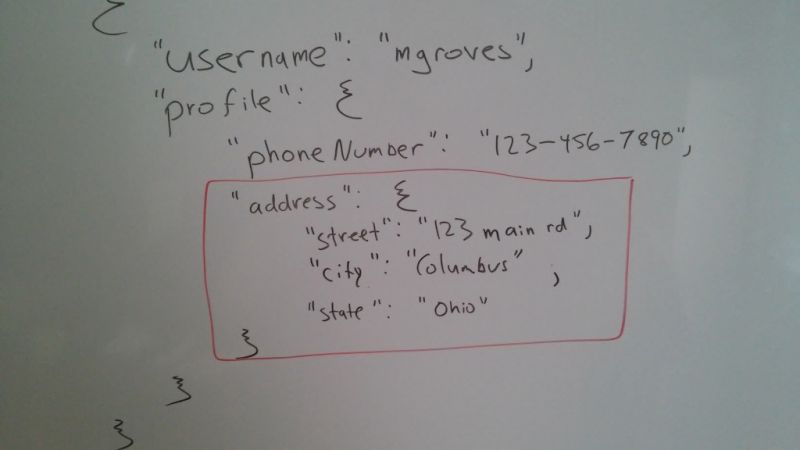 {
"username": "mgroves",
"profile": {
"phoneNumber": "123-456-7890",
"address": {
"street": "123 main rd",
"city": "Columbus" ,
"state": "Ohio"
}
}
}